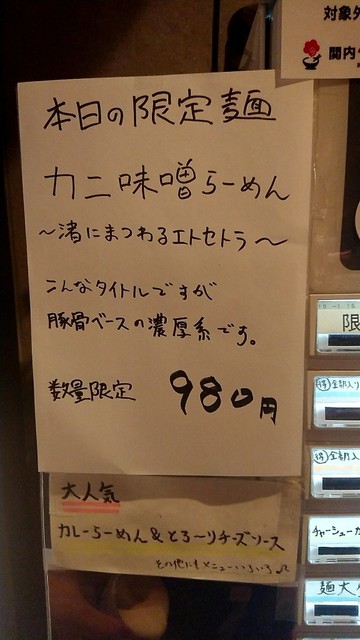 対象外
関内
本日の限定麺
カニ味噌らーめん
〜渚にまつわるエトセトラ〜
こんなタイトルですが
豚骨ベースの濃厚系です。
数量限定 980円
限
得 全部入り
得 全部入
チャーシュー
麺大
大人気
カレーらーめん&とろ〜りチーズソース
その他にもメニューいろいろ♫